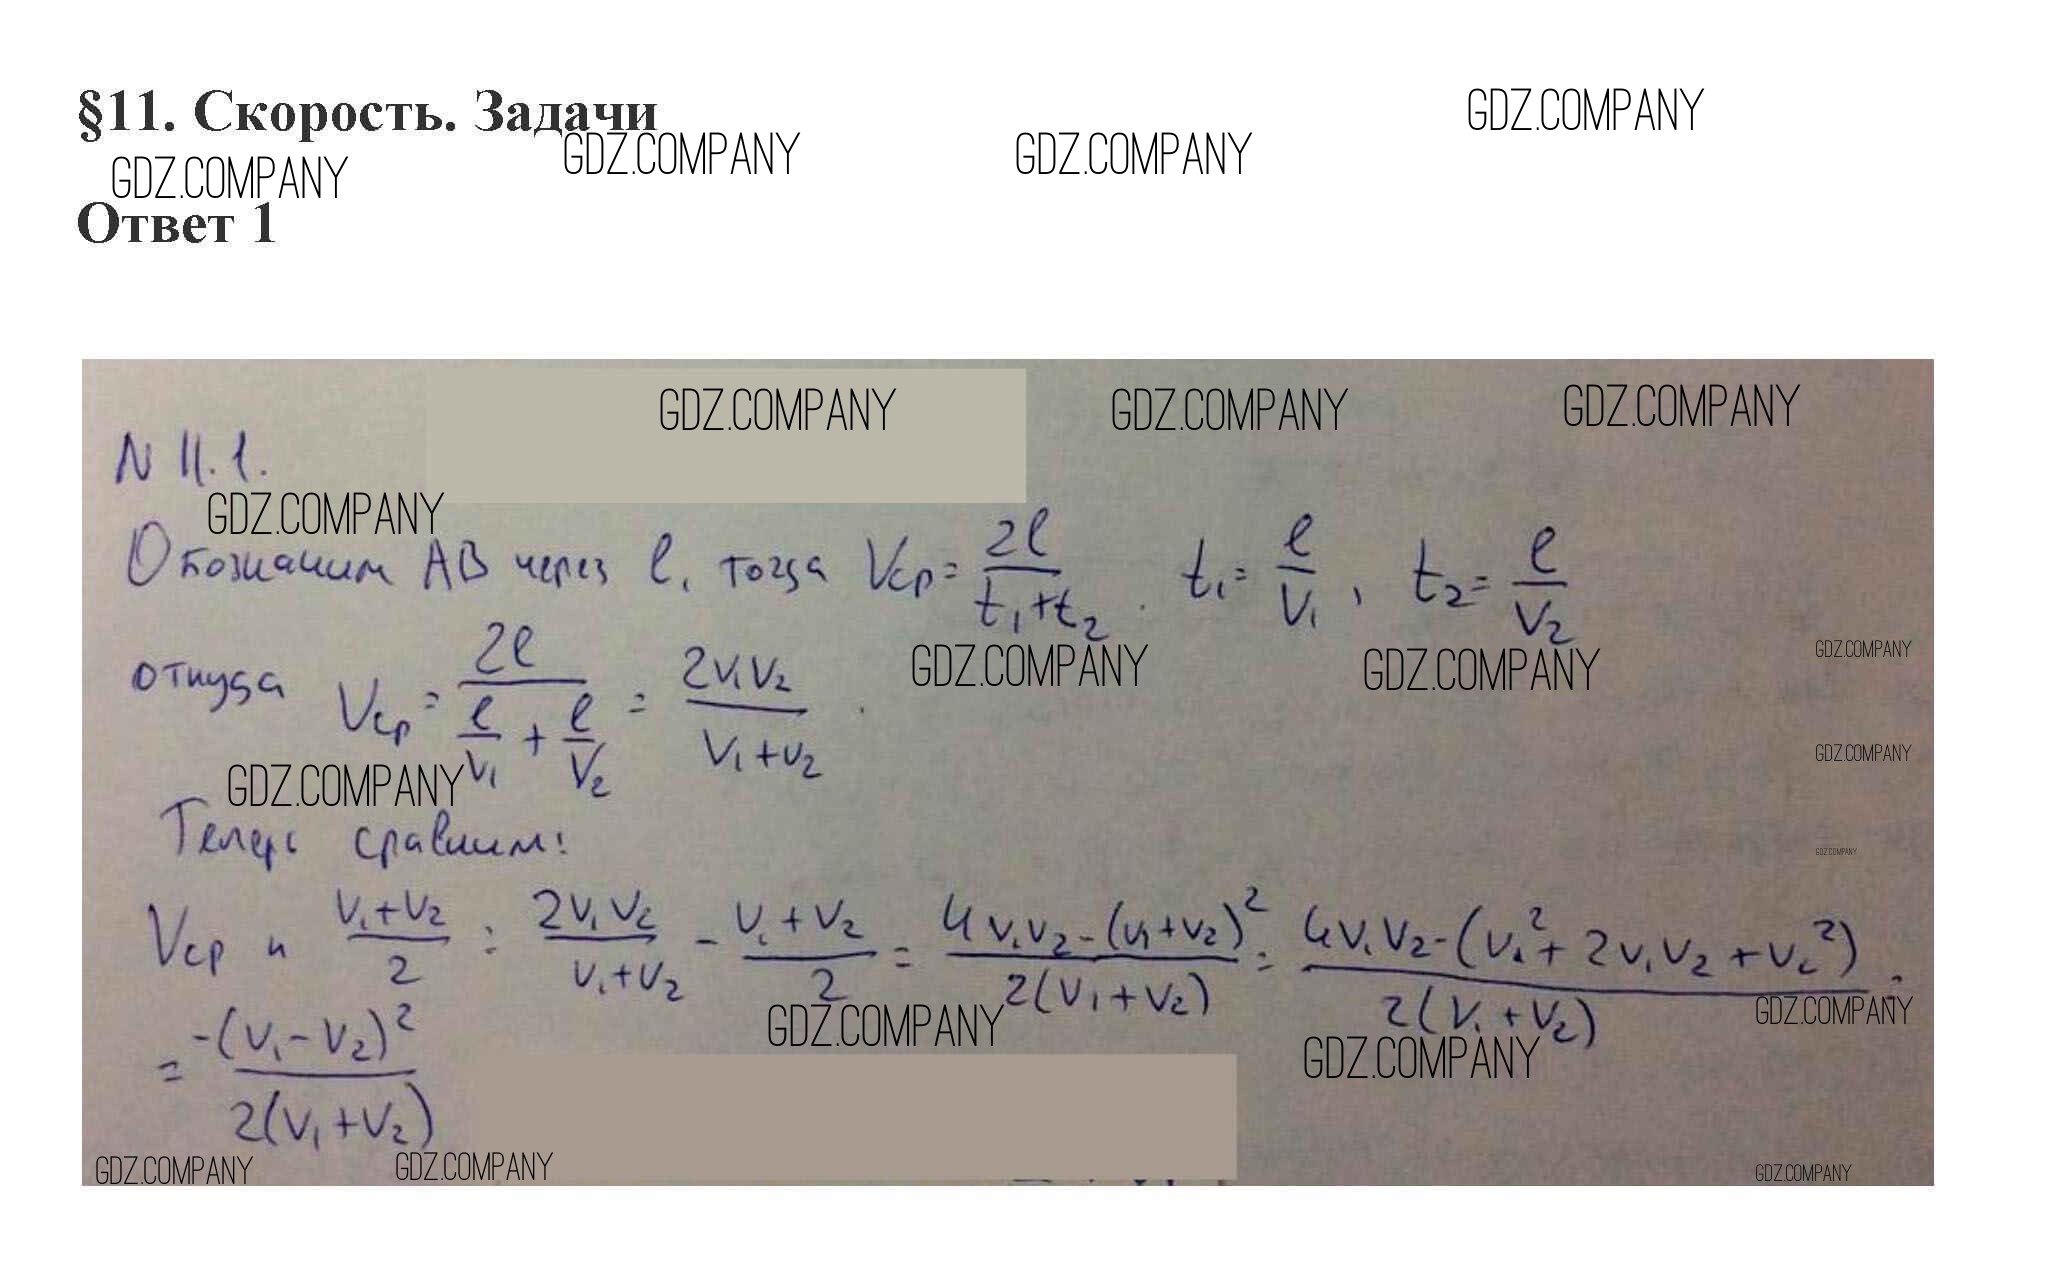 §11. Скорость. Задачи
GDZ.COMPANY
GDZ.COMPANY
GDZ.COMPANY
GDZ.COMPANY
Ответ 1
GDZ.COMPANY
GDZ.COMPANY
GDZ.COMPANY
N 11.1.
GDZ.COMPANY
Обозначим AB через l, тогда Vср = 2l / (t₁+t₂). t₁ = l / V₁, t₂ = l / V₂
GDZ.COMPANY
GDZ.COMPANY
GDZ.COMPANY
откуда Vср = 2l / (l/V₁ + l/V₂) = 2V₁V₂ / (V₁+V₂).
GDZ.COMPANY
GDZ.COMPANY
Теперь сравним:
GDZ.COMPANY
Vср и (V₁+V₂)/2 : 2V₁V₂/(V₁+V₂) - (V₁+V₂)/2 = (4V₁V₂-(V₁+V₂)²)/(2(V₁+V₂)) = (4V₁V₂-(V₁²+2V₁V₂+V₂²))/(2(V₁+V₂)) =
GDZ.COMPANY
GDZ.COMPANY
GDZ.COMPANY
= -(V₁-V₂)² / (2(V₁+V₂))
GDZ.COMPANY
GDZ.COMPANY
GDZ.COMPANY